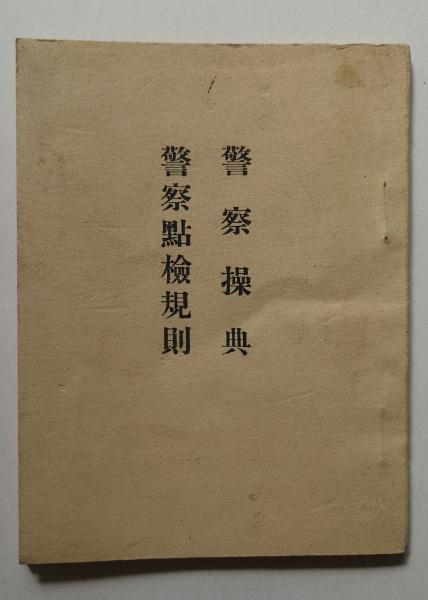 警察操典
警察點檢規則